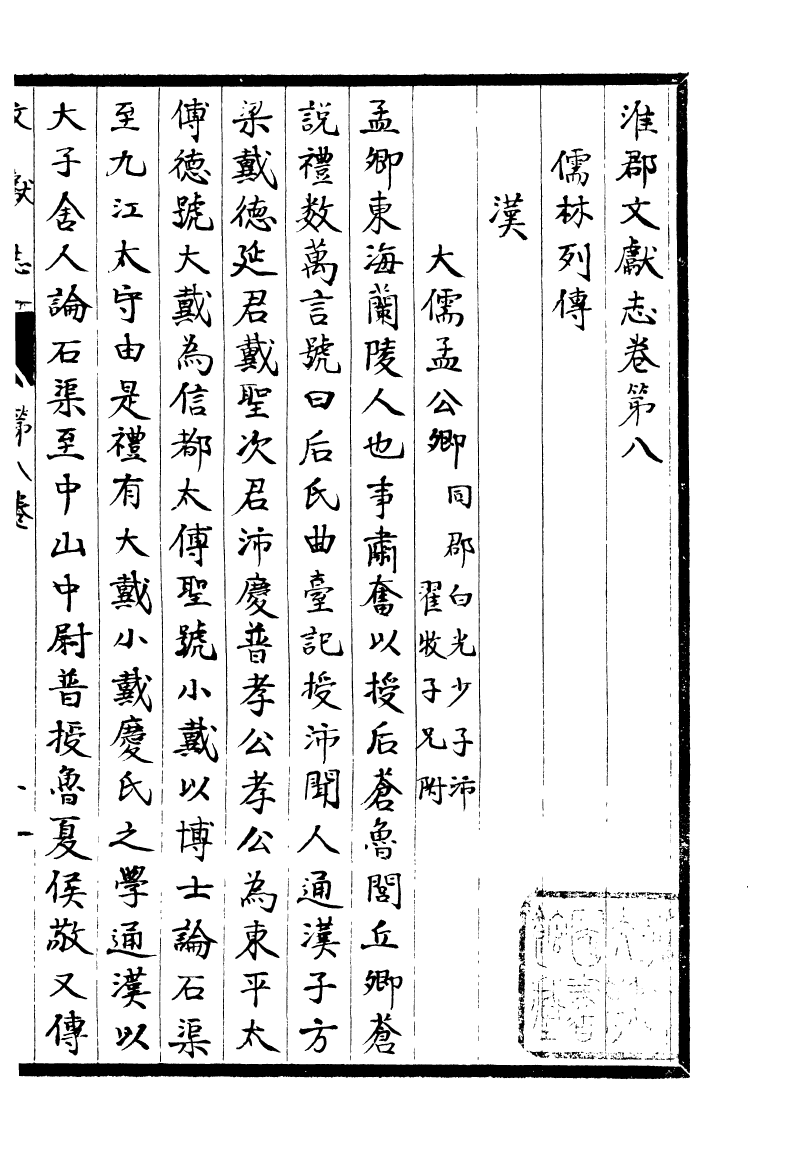 淮郡文獻志卷第八
儒林列傳
漢
大儒孟公卿同郡白光少子沛
翟牧子兄附
孟卿東海蘭陵人也事肅奮以授后蒼魯閭丘卿蒼
說禮数萬言號曰后氏曲臺記授沛聞人通漢子方
梁戴德延君戴聖次君沛慶普孝公孝公為東平太
傅德號大戴為信都太傅聖號小戴以博士論石渠
至九江太守由是禮有大戴小戴慶氏之學通漢以
大子舍人論石渠至中山中尉普授魯夏侯敬又傳
文獻志
第八卷
一